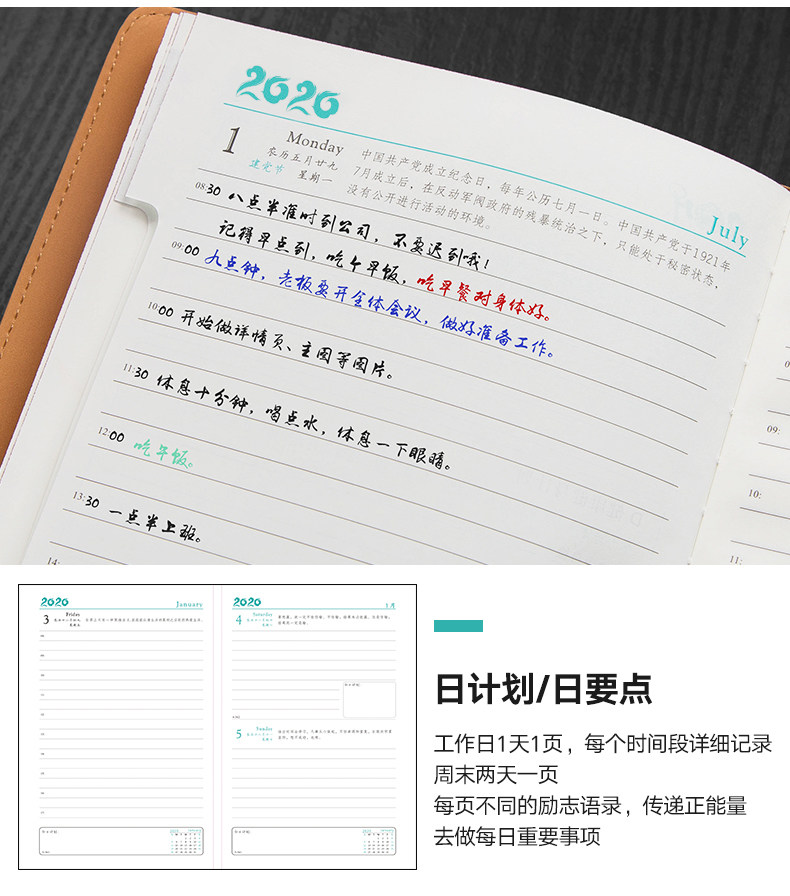 2020
July
1
Monday
农历五月廿九
建党节 星期一
中国共产党成立纪念日，每年公历七月一日。中国共产党于1921年
7月成立后，在反动军阀政府的残暴统治之下，只能处于秘密状态，
没有公开进行活动的环境。
08:30 八点半准时到公司，不要迟到哦！
记得早点到，吃个早饭，吃早餐对身体好。
09:00 九点钟，老板要开全体会议，做好准备工作。
10:00 开始做详情页、主图等图片。
11:30 休息十分钟，喝点水，休息一下眼睛。
12:00 吃午饭。
13:30 一点半上班。
14:
09:
10:
11:
2020
January
3
Friday
2020
1月
4
Saturday
5
Sunday
日计划/日要点
工作日1天1页，每个时间段详细记录
周末两天一页
每页不同的励志语录，传递正能量
去做每日重要事项